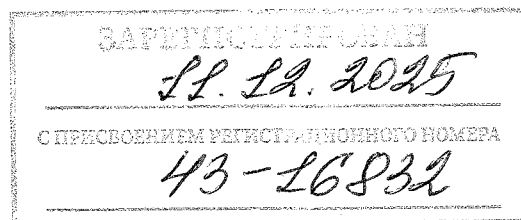 ЗАРЕГИСТРИРОВАН
11.12.2025
С ПРИСВОЕНИЕМ РЕГИСТРАЦИОННОГО НОМЕРА
43-16832